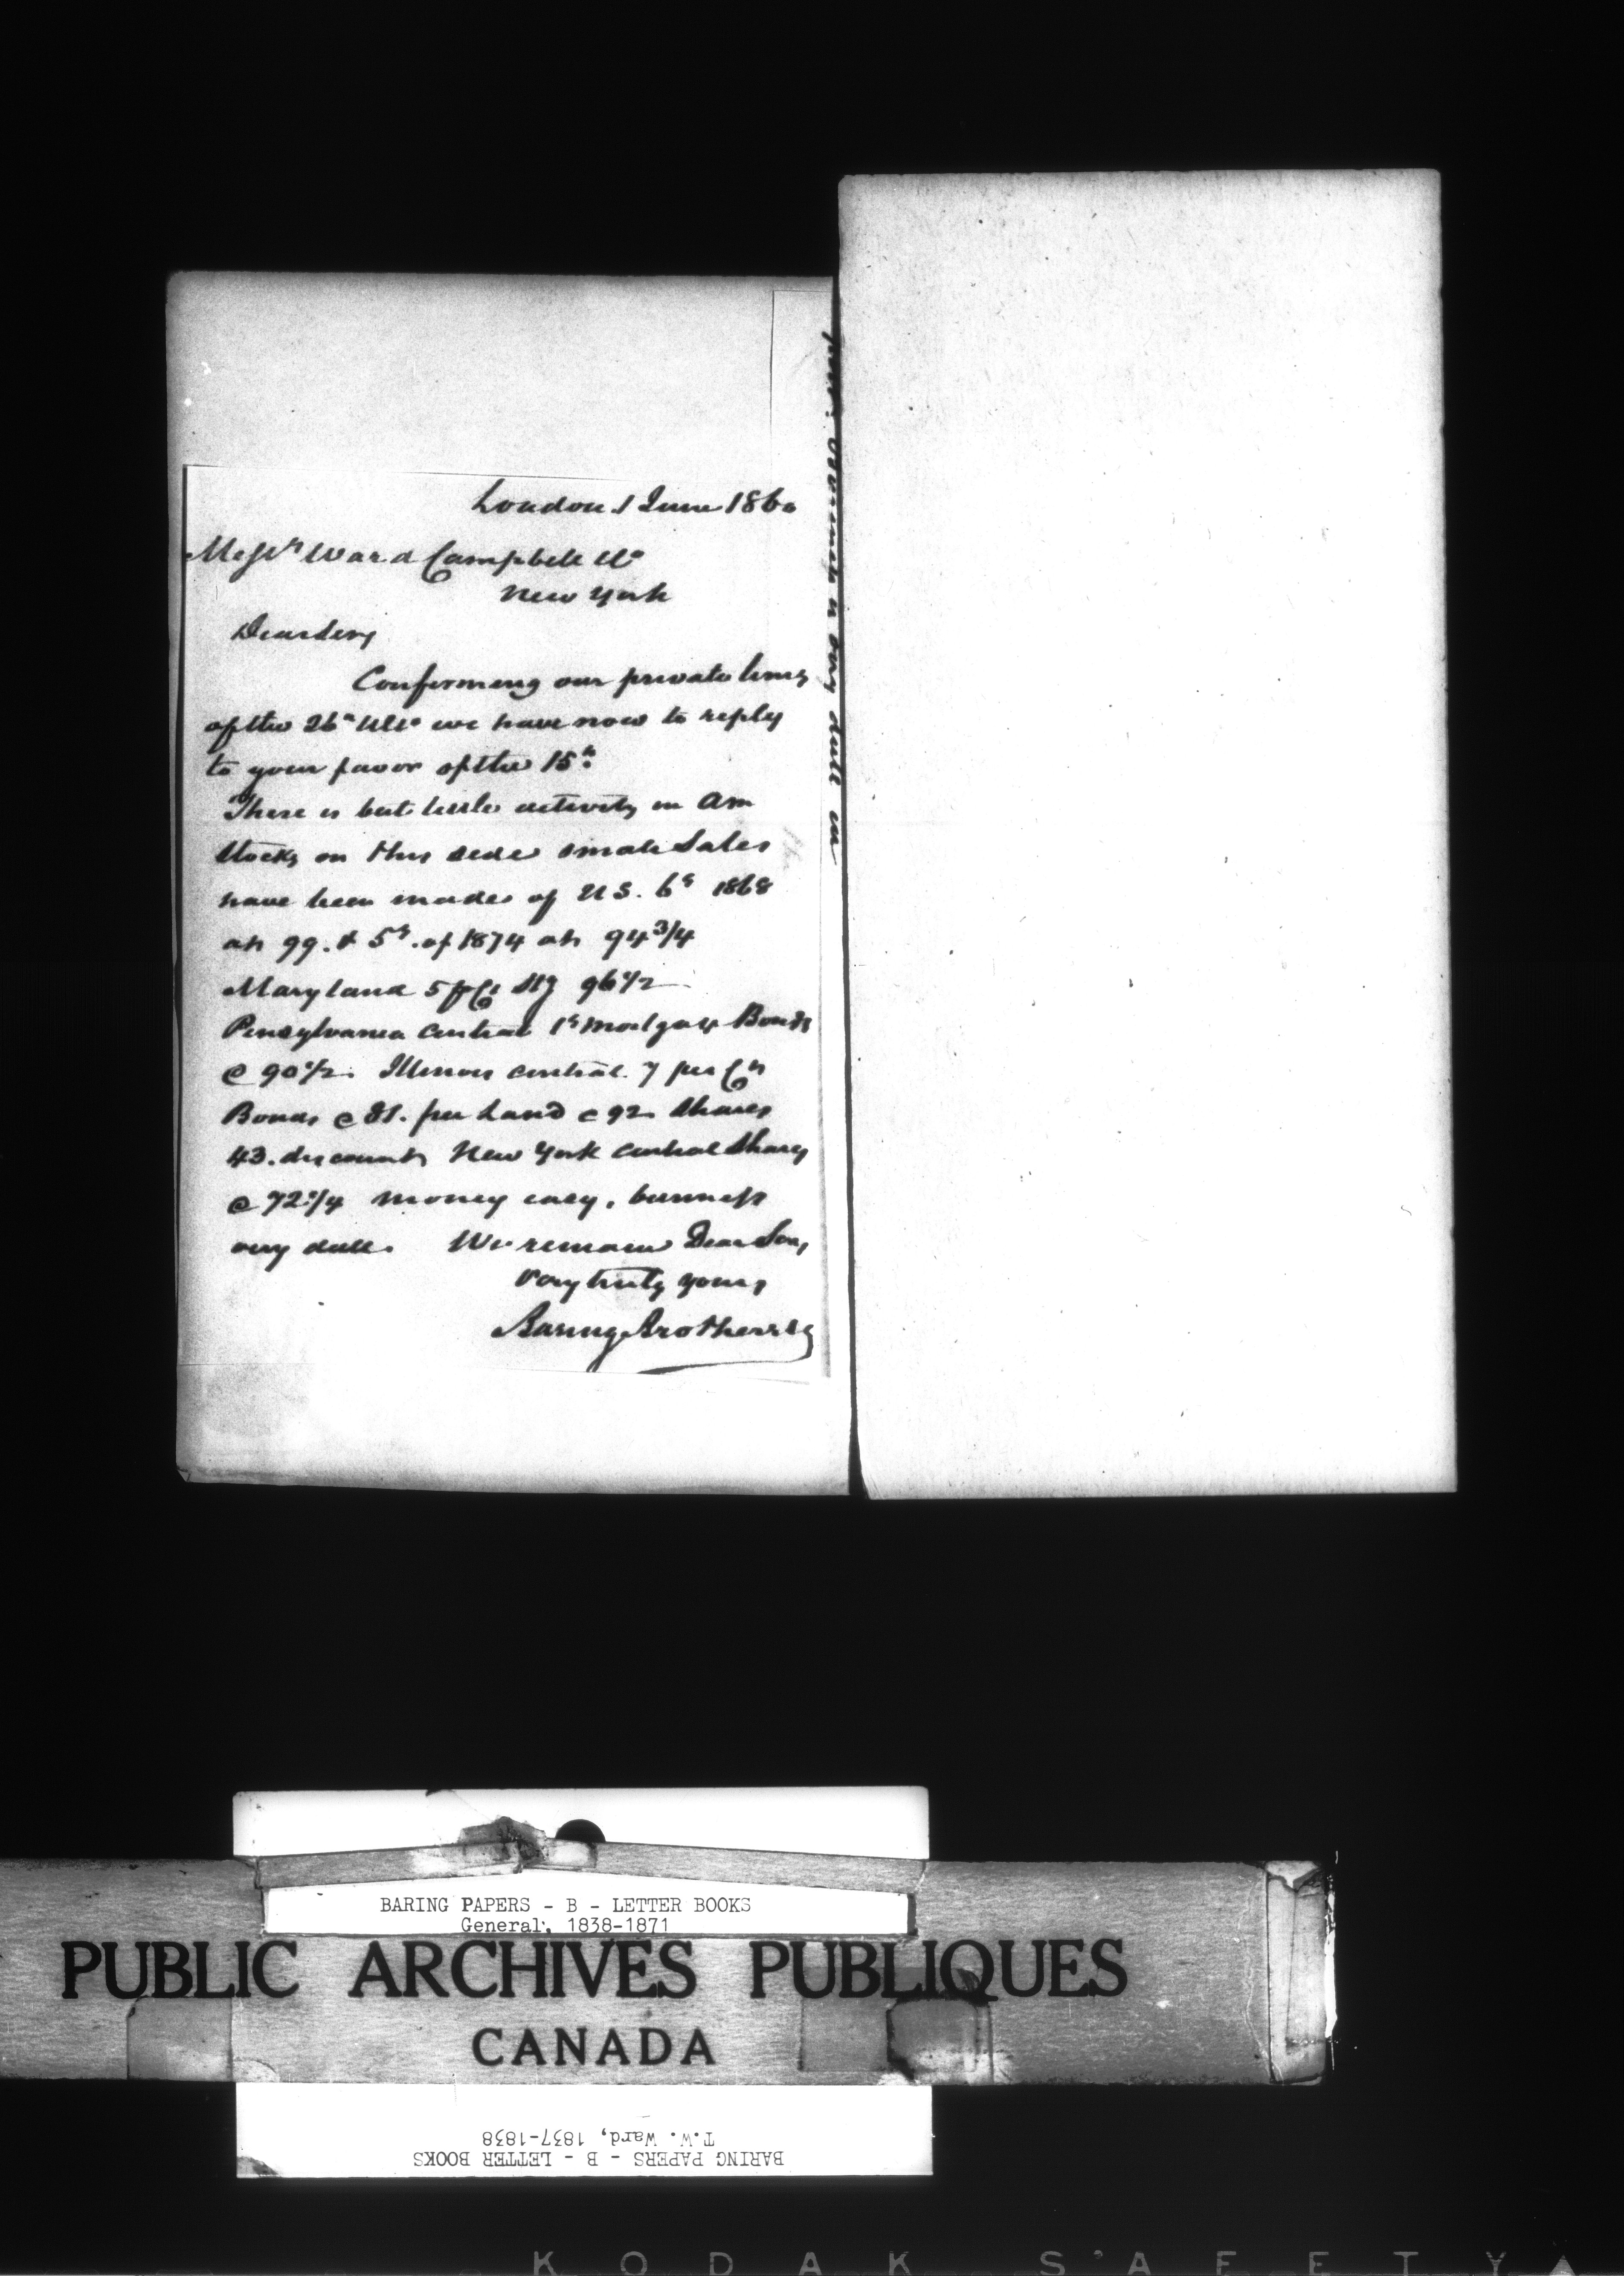 London 1 June 1860
Messrs Ward Campbell Co
New York
Dear Sirs
Confirming our private lines
of the 26th Ulto we have now to reply
to your favor of the 15th
There is but little activity in Am
Stocks on this side small Sales
have been made of U S. 6s 1868
at 99. & 5s. of 1874 at 94 3/4
Maryland 5 p Ct Stg 96 1/2
Pensylvania Central 1st Mortgage Bonds
@ 90 1/2. Illinois Central 7 per Ct
Bonds @ 81. free Land @ 92 Shares
43. discount New York Central Shares
@ 72 3/4 Money easy, business
very dull. We remain Dear Sirs,
Very truly yours,
Baring Brothers Co
is very dull in
BARING PAPERS - B - LETTER BOOKS
General, 1838-1871
PUBLIC ARCHIVES PUBLIQUES
CANADA
T.W. Ward, 1837-1838
BARING PAPERS - B - LETTER BOOKS
KODAK SAFETY